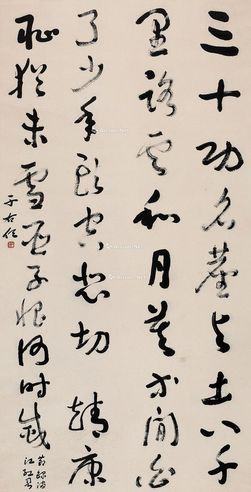 三十功名塵与土八千
里路雲和月莫等閒白
了少年頭空悲切靖康
恥猶未雪臣子恨何時滅
江紅
于右任